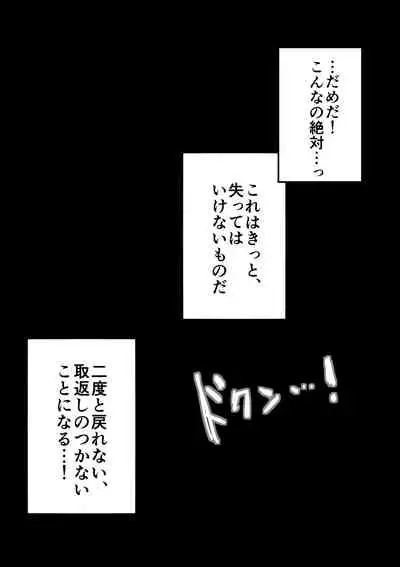 …だめだ！
こんなの絶対…っ
これはきっと、
失っては
いけないものだ
ドクン…！
二度と戻れない、
取返しのつかない
ことになる…！